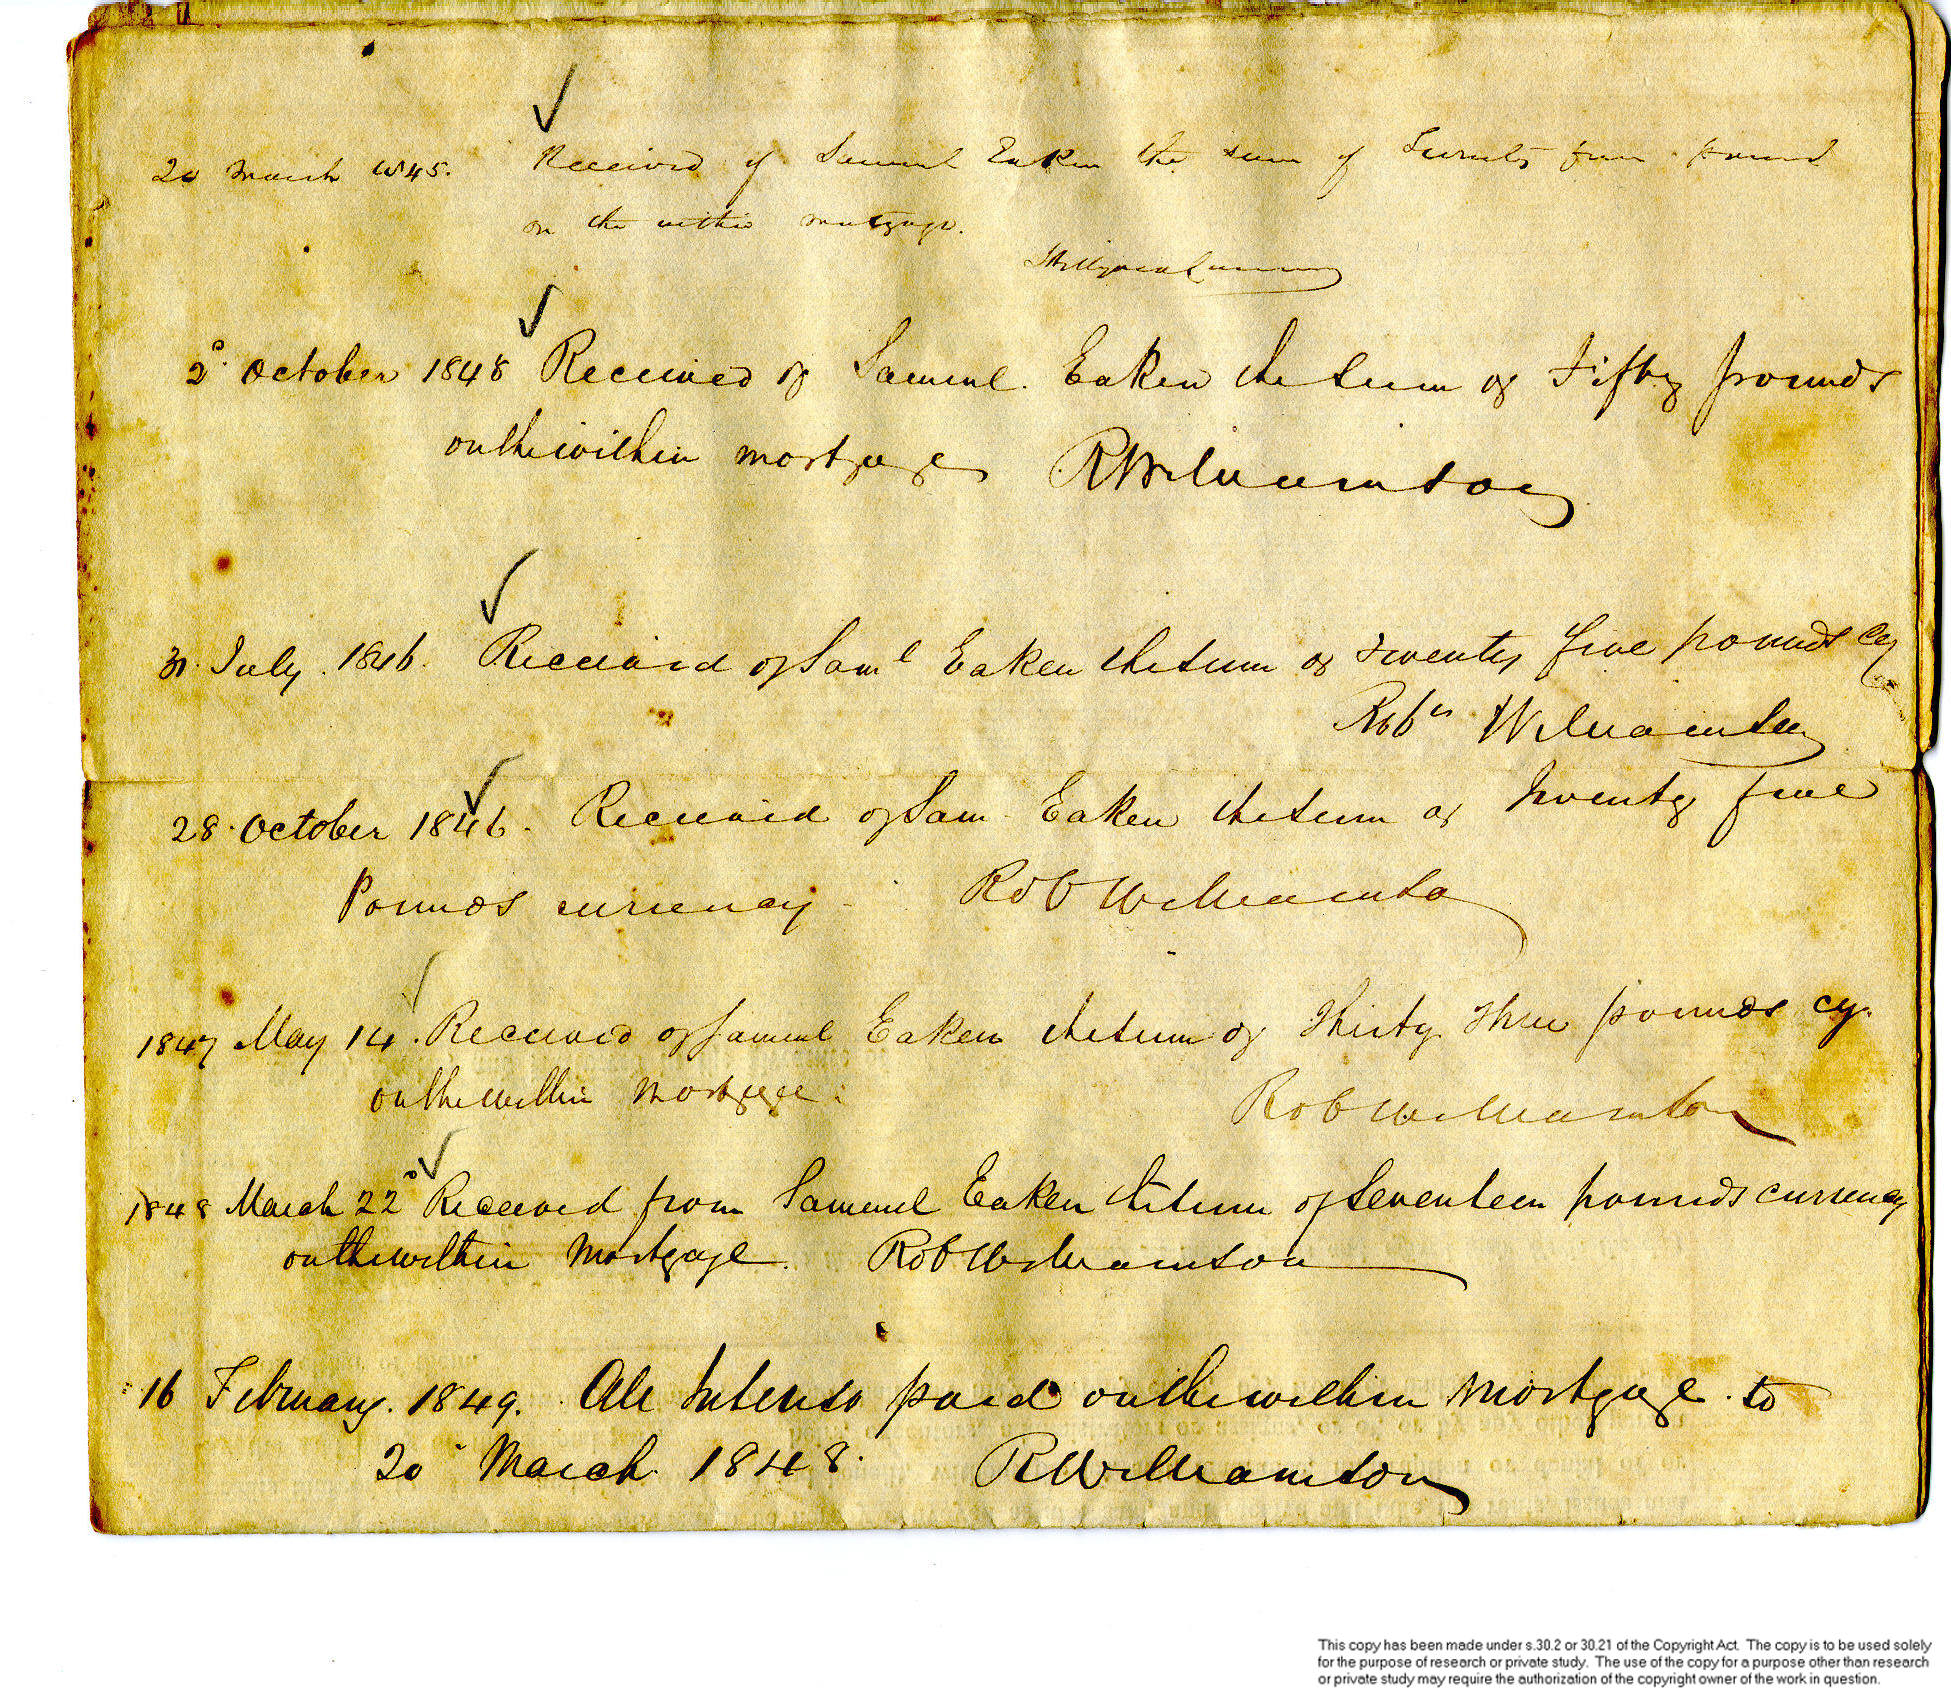 20 March 1845. Received of Samuel Eaken the sum of Twenty five pound
on the within mortgage.
2d. October 1848 Received of Samuel Eaken the sum of Fifty pounds
on the within mortgage RWilliamson
31 July 1846. Received of Saml Eaken the sum of Twenty five pounds cy
Robt Williamson
28 October 1846. Received of Sam Eaken the sum of Twenty five
Pounds currency Rob Williamson
1847 May 14. Received of Samuel Eaken the sum of Thirty Three pounds cy.
on the within Mortgage. Rob Williamson
1848 March 22d Received from Samuel Eaken the sum of Seventeen pounds currency
on the within Mortgage. Rob Williamson
16 February. 1849. All Interest paid on the within Mortgage to
20 March 1848. RWilliamson
This copy has been made under s.30.2 or 30.21 of the Copyright Act. The copy is to be used solely
for the purpose of research or private study. The use of the copy for a purpose other than research
or private study may require the authorization of the copyright owner of the work in question.